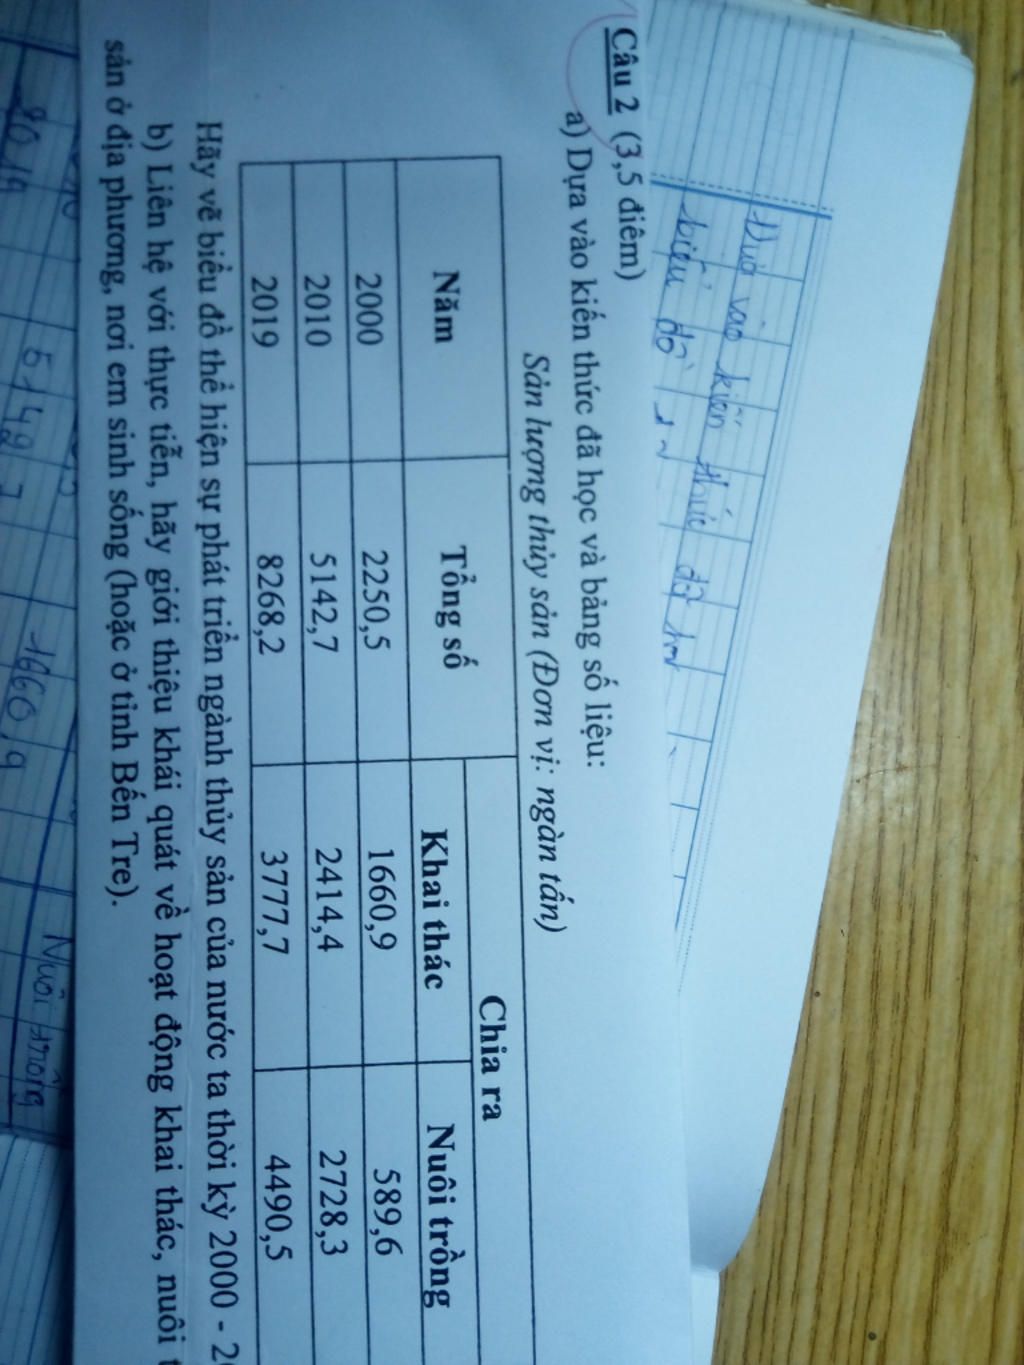 Dựa vào kiến thức đã học
biểu đồ
Câu 2 (3,5 điểm)
a) Dựa vào kiến thức đã học và bảng số liệu:
Sản lượng thủy sản (Đơn vị: ngàn tấn)
Năm Tổng số Chia ra
Khai thác Nuôi trồng
2000 2250,5 1660,9 589,6
2010 5142,7 2414,4 2728,3
2019 8268,2 3777,7 4490,5
Hãy vẽ biểu đồ thể hiện sự phát triển ngành thủy sản của nước ta thời kỳ 2000 - 2
b) Liên hệ với thực tiễn, hãy giới thiệu khái quát về hoạt động khai thác, nuôi
sản ở địa phương, nơi em sinh sống (hoặc ở tỉnh Bến Tre).
Nuôi trồng
2019 5142,7 1660,9